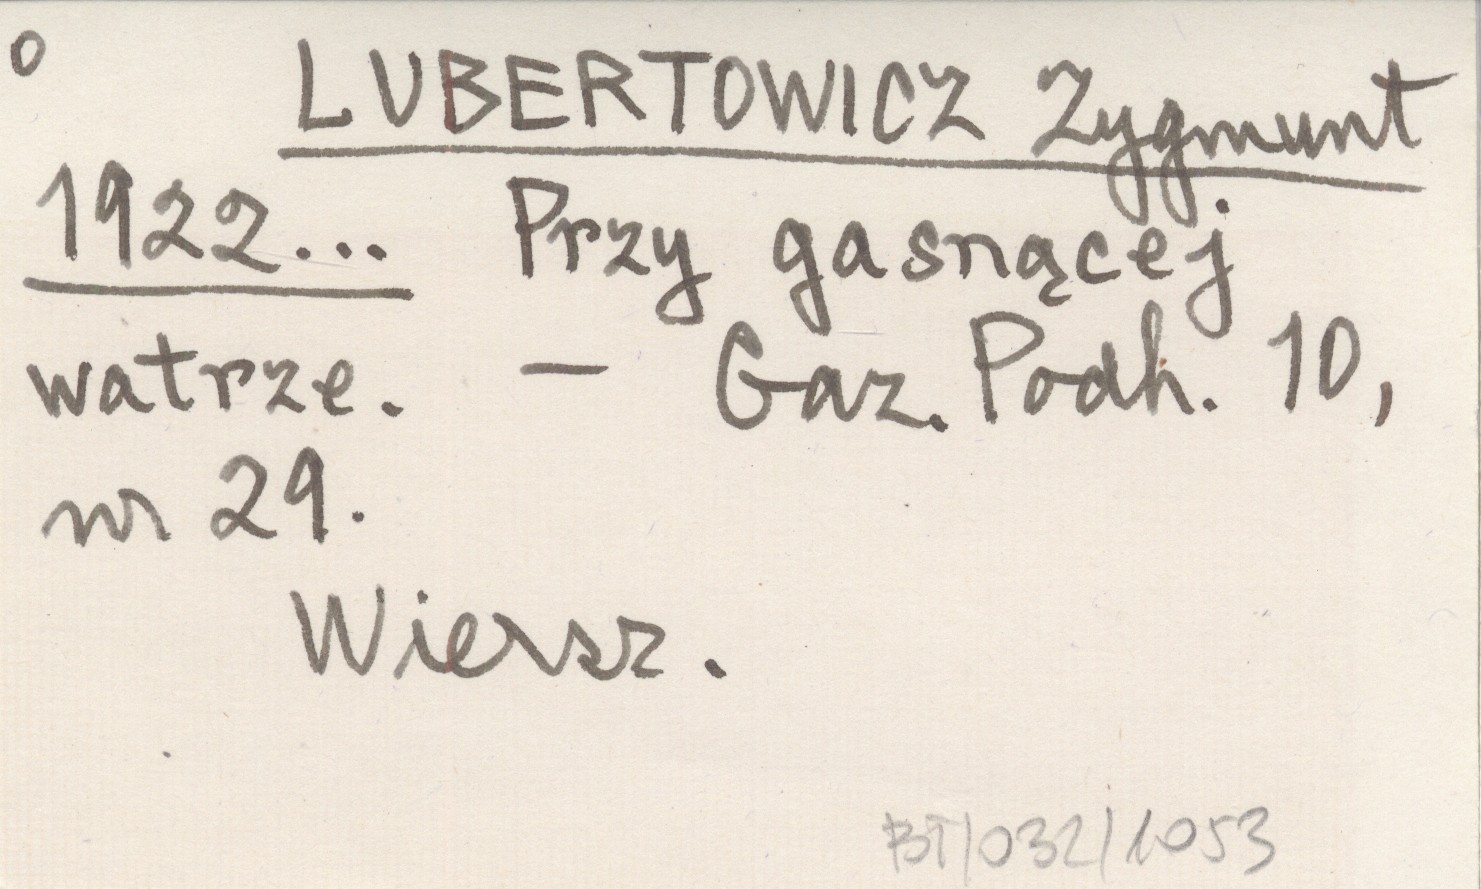 o
LUBERTOWICZ Zygmunt
1922... Przy gasnącej
watrze. – Gaz. Podh. 10,
nr 29.
Wiersz.
BT/032/1053